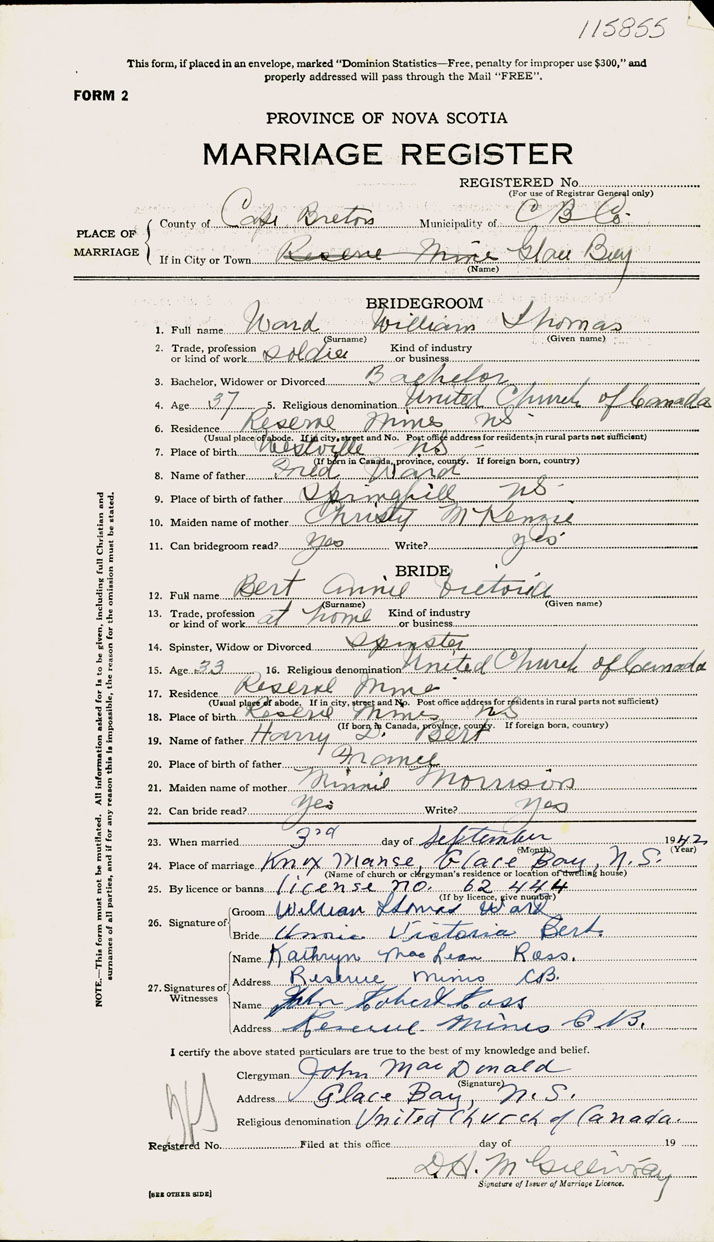 115855
This form, if placed in an envelope, marked "Dominion Statistics—Free, penalty for improper use $300," and
properly addressed will pass through the Mail "FREE".
FORM 2
PROVINCE OF NOVA SCOTIA
MARRIAGE REGISTER
REGISTERED No.
(For use of Registrar General only)
PLACE OF MARRIAGE
County of Cape Breton Municipality of C B Co.
If in City or Town Reserve Mine Glace Bay
(Name)
BRIDEGROOM
1. Full name Ward William Thomas
(Surname) (Given name)
2. Trade, profession or kind of work soldier Kind of industry or business
3. Bachelor, Widower or Divorced Bachelor
4. Age 37 5. Religious denomination United Church of Canada
6. Residence Reserve Mines NS
(Usual place of abode. If in city, street and No. Post office address for residents in rural parts not sufficient)
7. Place of birth Westville NS
(If born in Canada, province, county. If foreign born, country)
8. Name of father Fred Ward
9. Place of birth of father Springhill NS
10. Maiden name of mother Christy McKenzie
11. Can bridegroom read? Yes Write? yes
BRIDE
12. Full name Bert Annie Victoria
(Surname) (Given name)
13. Trade, profession or kind of work at home Kind of industry or business
14. Spinster, Widow or Divorced Spinster
15. Age 33 16. Religious denomination United Church of Canada
17. Residence Reserve Mine
(Usual place of abode. If in city, street and No. Post office address for residents in rural parts not sufficient)
18. Place of birth Reserve Mines NS
(If born in Canada, province, county. If foreign born, country)
19. Name of father Harry D. Bert
20. Place of birth of father France
21. Maiden name of mother Minnie Morrison
22. Can bride read? Yes Write? Yes
23. When married 3rd day of September 1942
(Month) (Year)
24. Place of marriage Knox Manse, Glace Bay, N.S.
(Name of church or clergyman's residence or location of dwelling house)
25. By licence or banns license no. 62444
(If by licence, give number)
26. Signature of
Groom William Thomas Ward
Bride Annie Victoria Bert
27. Signatures of Witnesses
Name Kathryn MacLean Ross.
Address Reserve Mines CB.
Name John Robert Ross
Address Reserve Mines C B.
I certify the above stated particulars are true to the best of my knowledge and belief.
Clergyman John MacDonald
(Signature)
Address Glace Bay, N.S.
Religious denomination United Church of Canada.
Registered No. Filed at this office day of 19
D.H. McGillivray
Signature of Issuer of Marriage Licence.
[SEE OTHER SIDE]
NOTE.—This form must not be mutilated. All information asked for is to be given, including full Christian and
surnames of all parties, and if for any reason this is impossible, the reason for the omission must be stated.